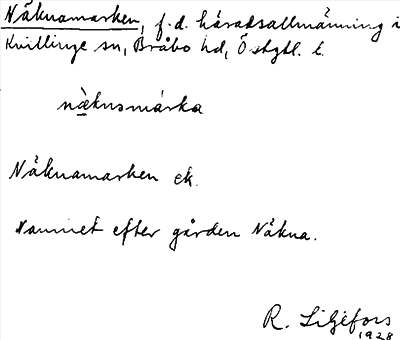 Näknamarken, f.d. häradsallmänning i
Kvillinge sn, Bråbo hd, Östgtl. l.
näknamárka
Näknamarken ek.
Namnet efter gården Näkna.
R. Liljefors
1928